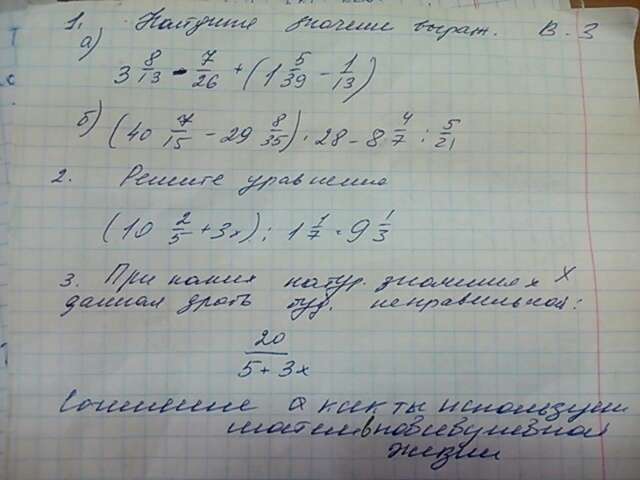 1. Найдите значени выраж. В-3
а) 3 8/13 - 7/26 + (1 5/39 - 1/13)
б) (40 7/15 - 29 8/35) · 28 - 8 4/7 : 5/21
2. Решите уравнение
(10 2/5 + 3x) : 1 1/7 = 9 1/3
3. При каких натур. значениях x
данная дробь буд. неправильной:
20/(5 + 3x)
Сочинение а как ты используеш
матем в
жизни